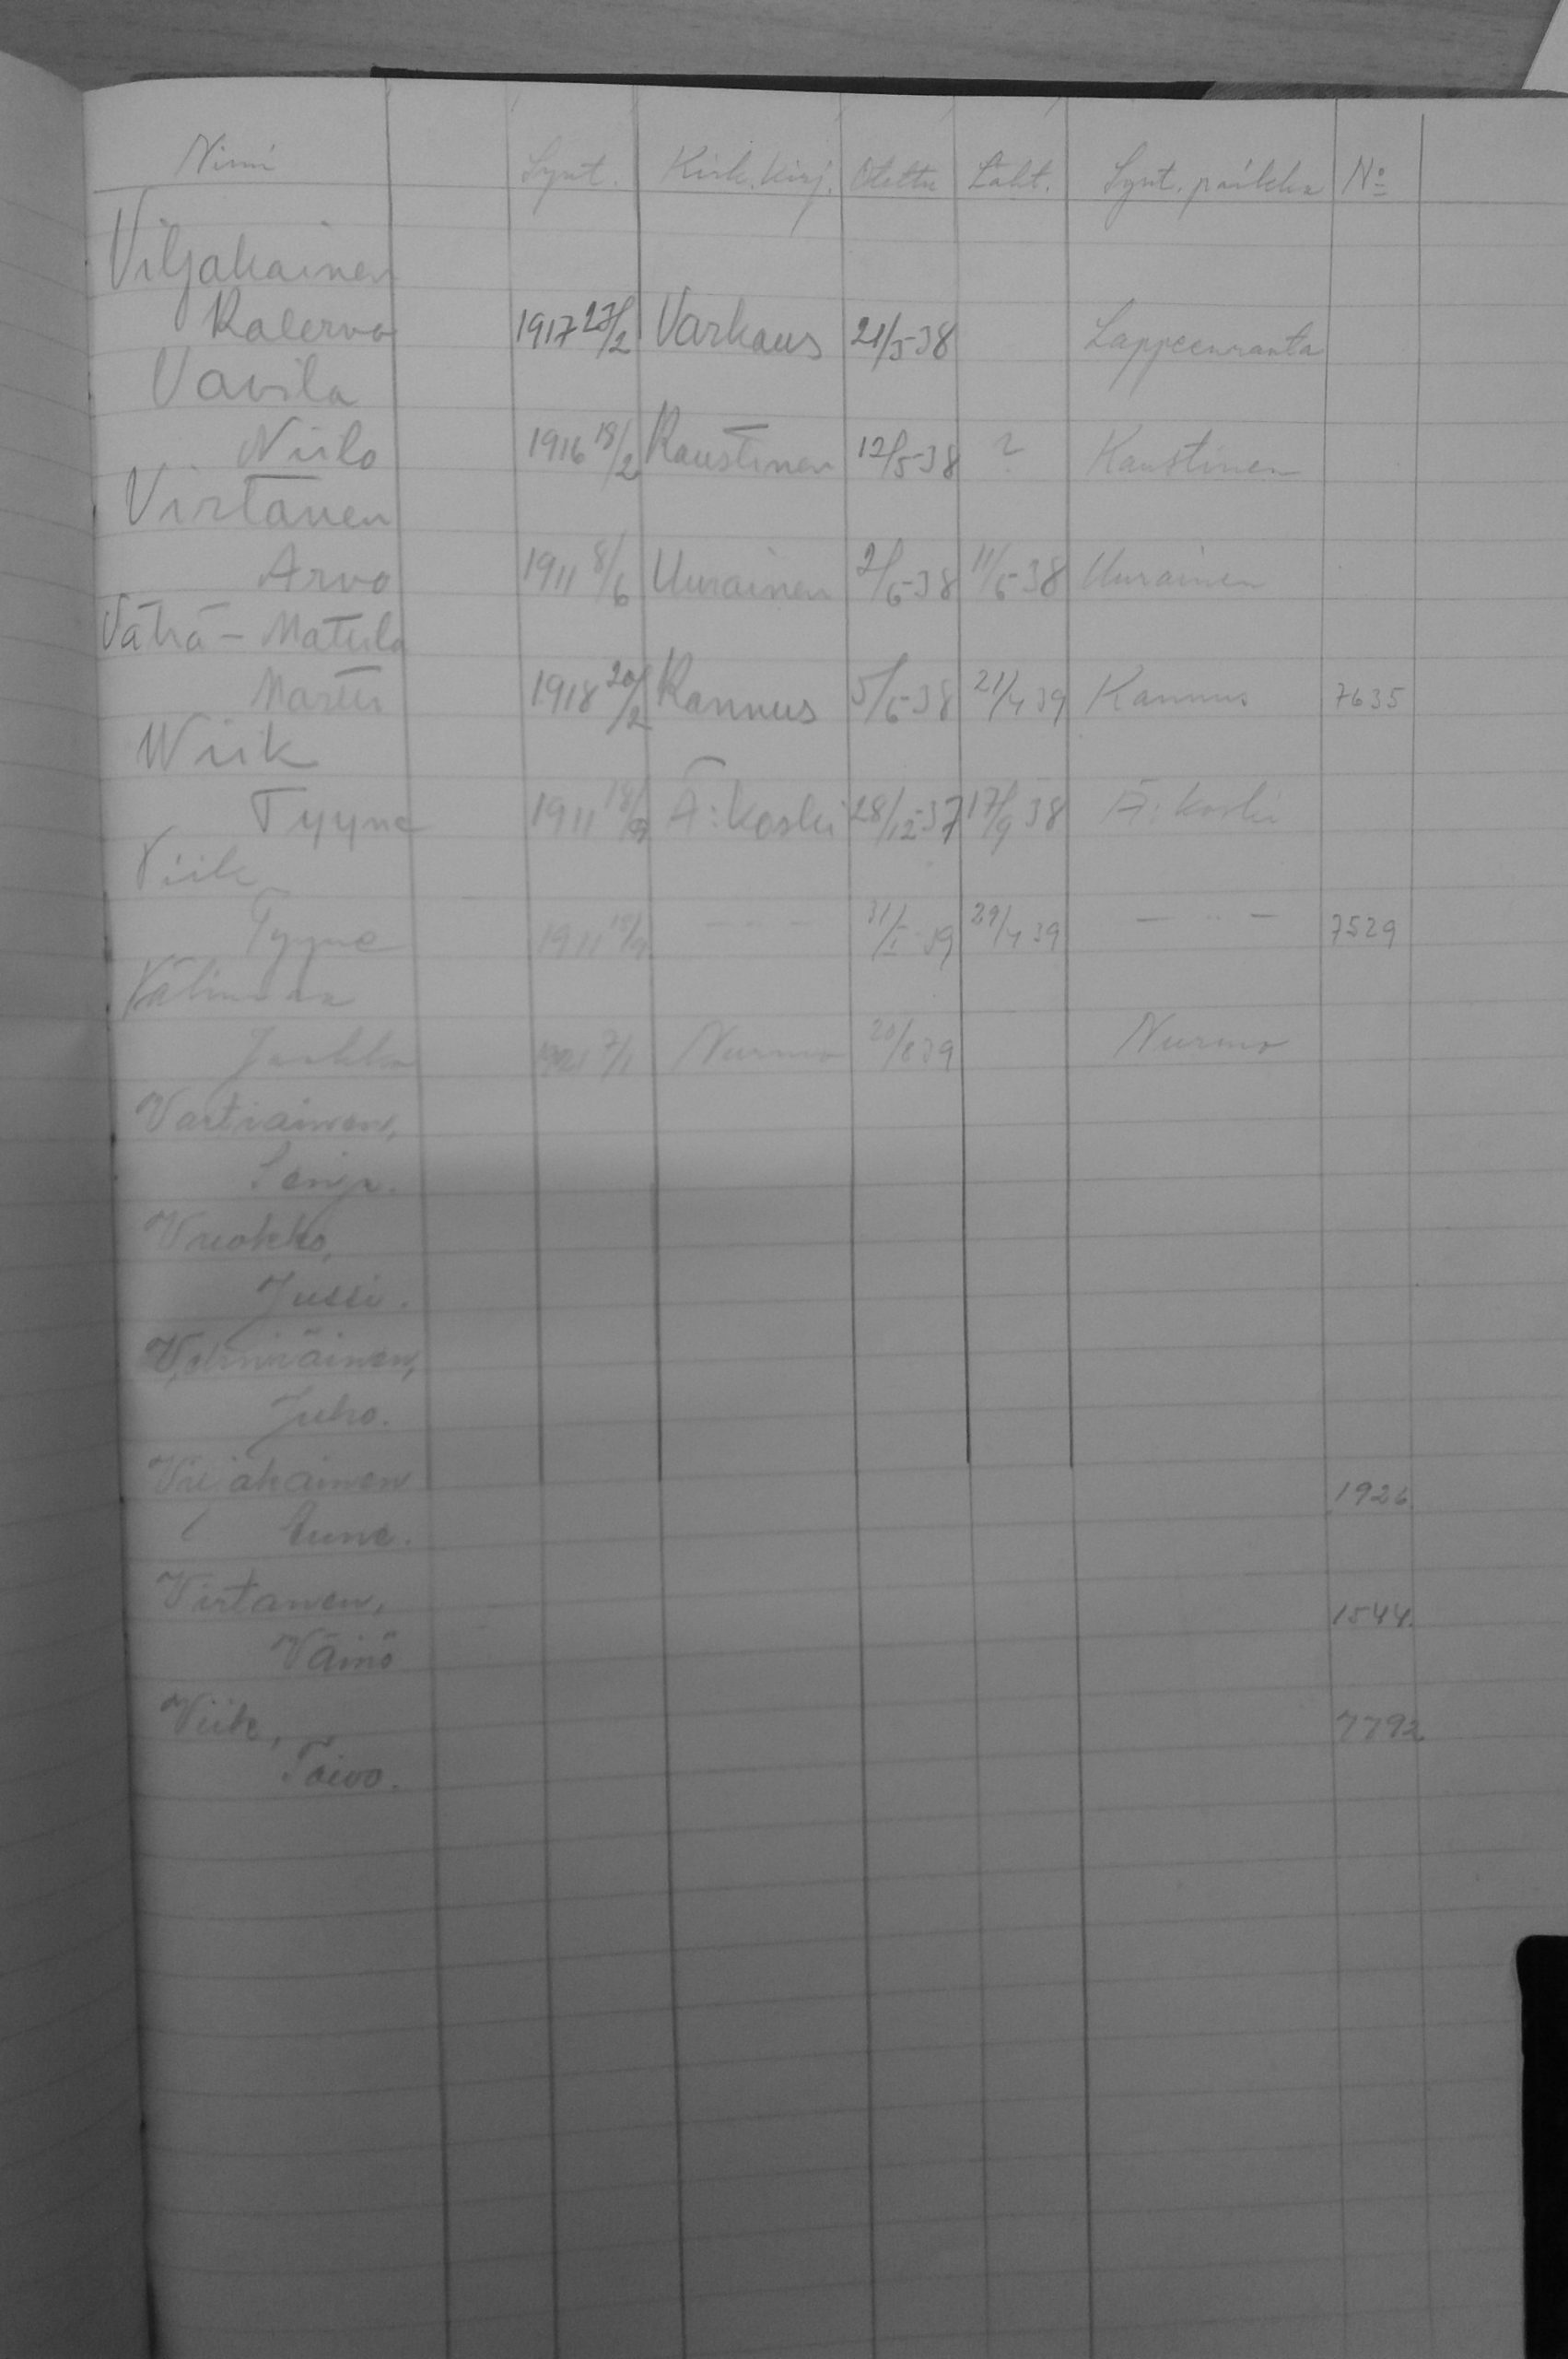 Nimi Synt. Kirk.kirj. Otettu Läht. Synt. paikka No
Viljakainen
Kalervo 1917 27/2 Varkaus 21/5-38 Lappeenranta
Vavila
Niilo 1916 18/2 Kaustinen 12/5-38 ? Kaustinen
Virtanen
Arvo 1911 8/6 Uurainen 2/6-38 11/6-38 Uurainen
Vähä-Matula
Martti 1918 20/2 Kannus 5/6-38 21/4 39 Kannus 7635
Wiik
Tyyne 1911 18/9 Ä:koski 28/12-37 17/9 38 Ä:koski
Viik
Tyyne 1911 18/9 - " - 31/1-39 29/4 39 - " - 7529
Välimaa
Jaakko 1921 7/1 Nurmo 20/8 39 Nurmo
Vartiainen,
Senja.
Vuokko,
Jussi.
Juho.
Viljakainen 1926
Aune.
Virtanen, 1544.
Väinö
Viik, 7792
Toivo.